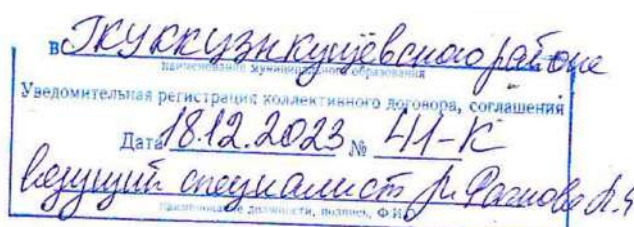 в ГКУ КК ЦЗН Кущёвского района
наименование муниципального образования
Уведомительная регистрация коллективного договора, соглашения
Дата 18.12.2023 № 41-К
ведущий специалист
наименование должности, подпись, Ф.И.О.